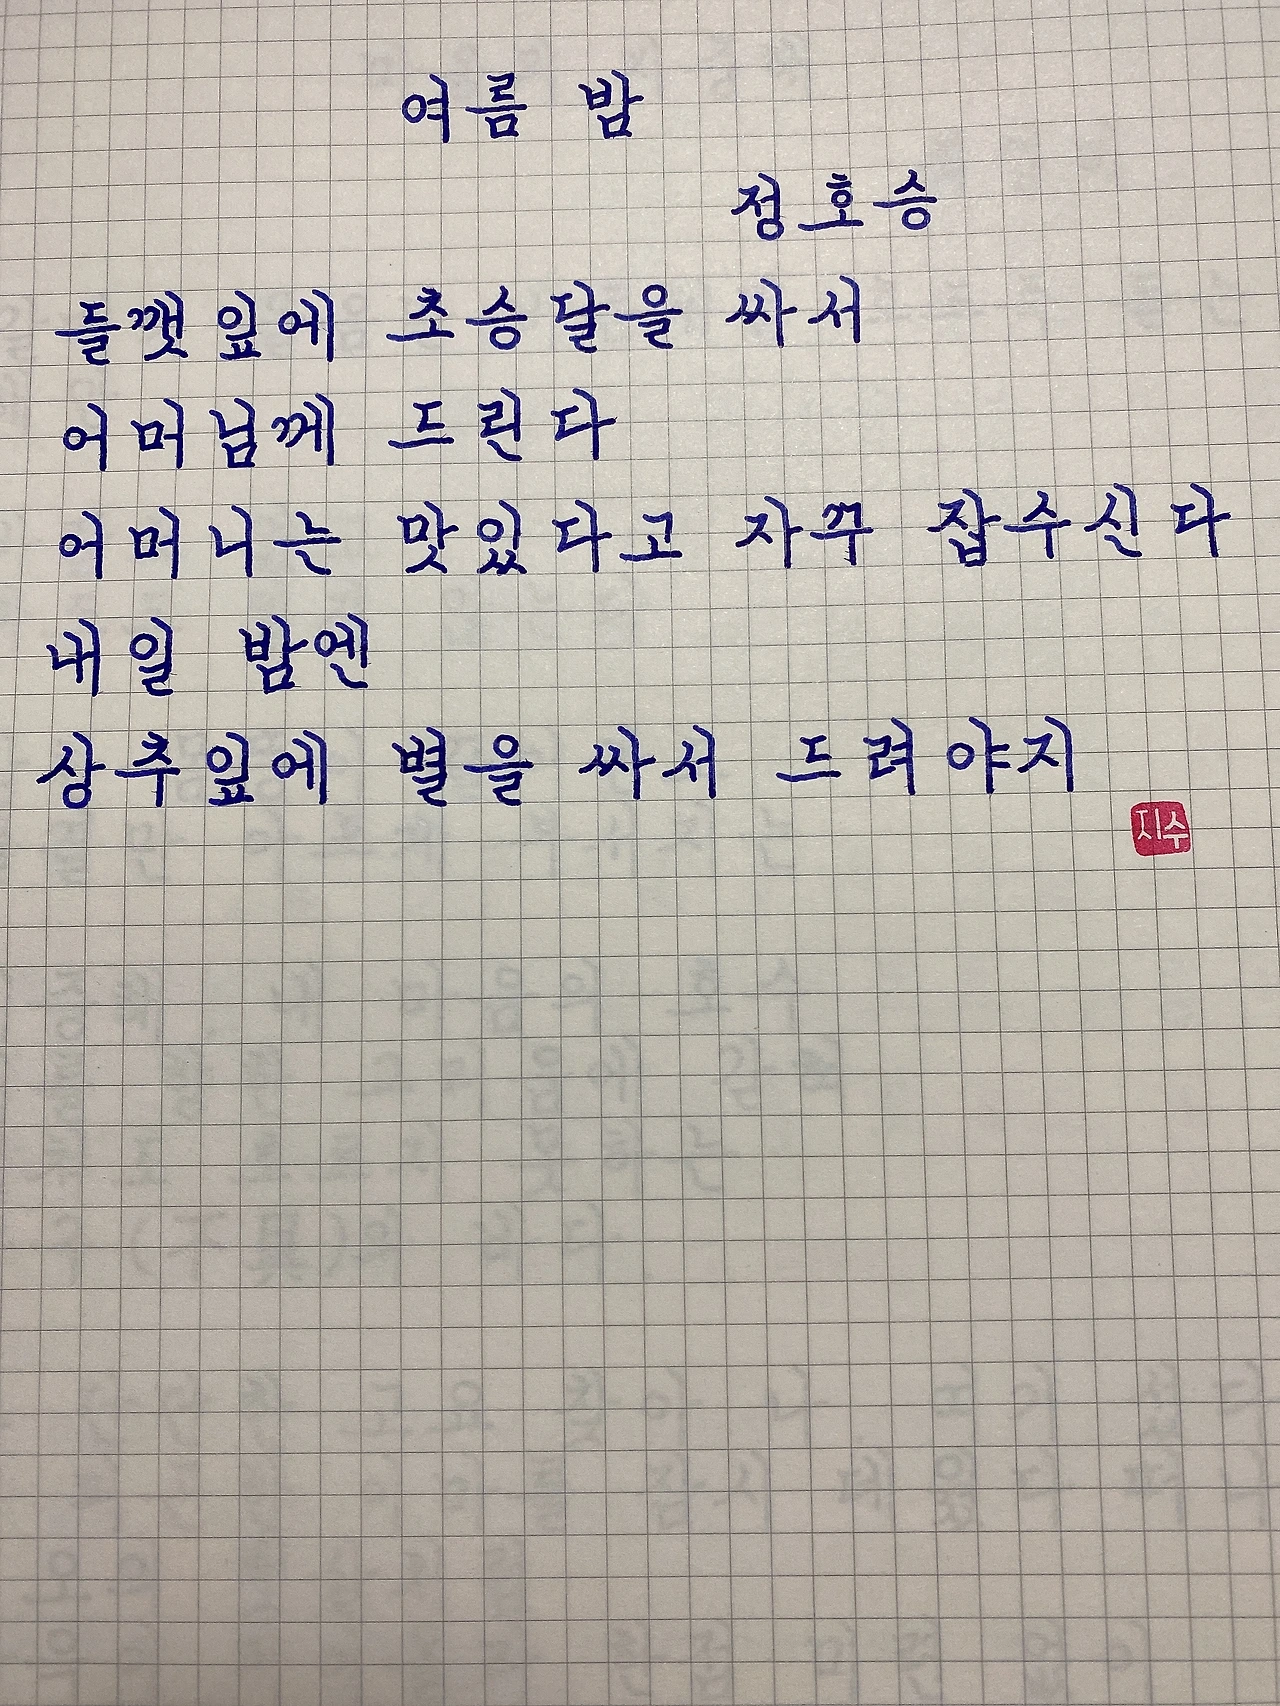 여름 밤
정호승
들깻잎에 초승달을 싸서
어머님께 드린다
어머니는 맛있다고 자꾸 잡수신다
내일 밤엔
상추잎에 별을 싸서 드려야지
지수